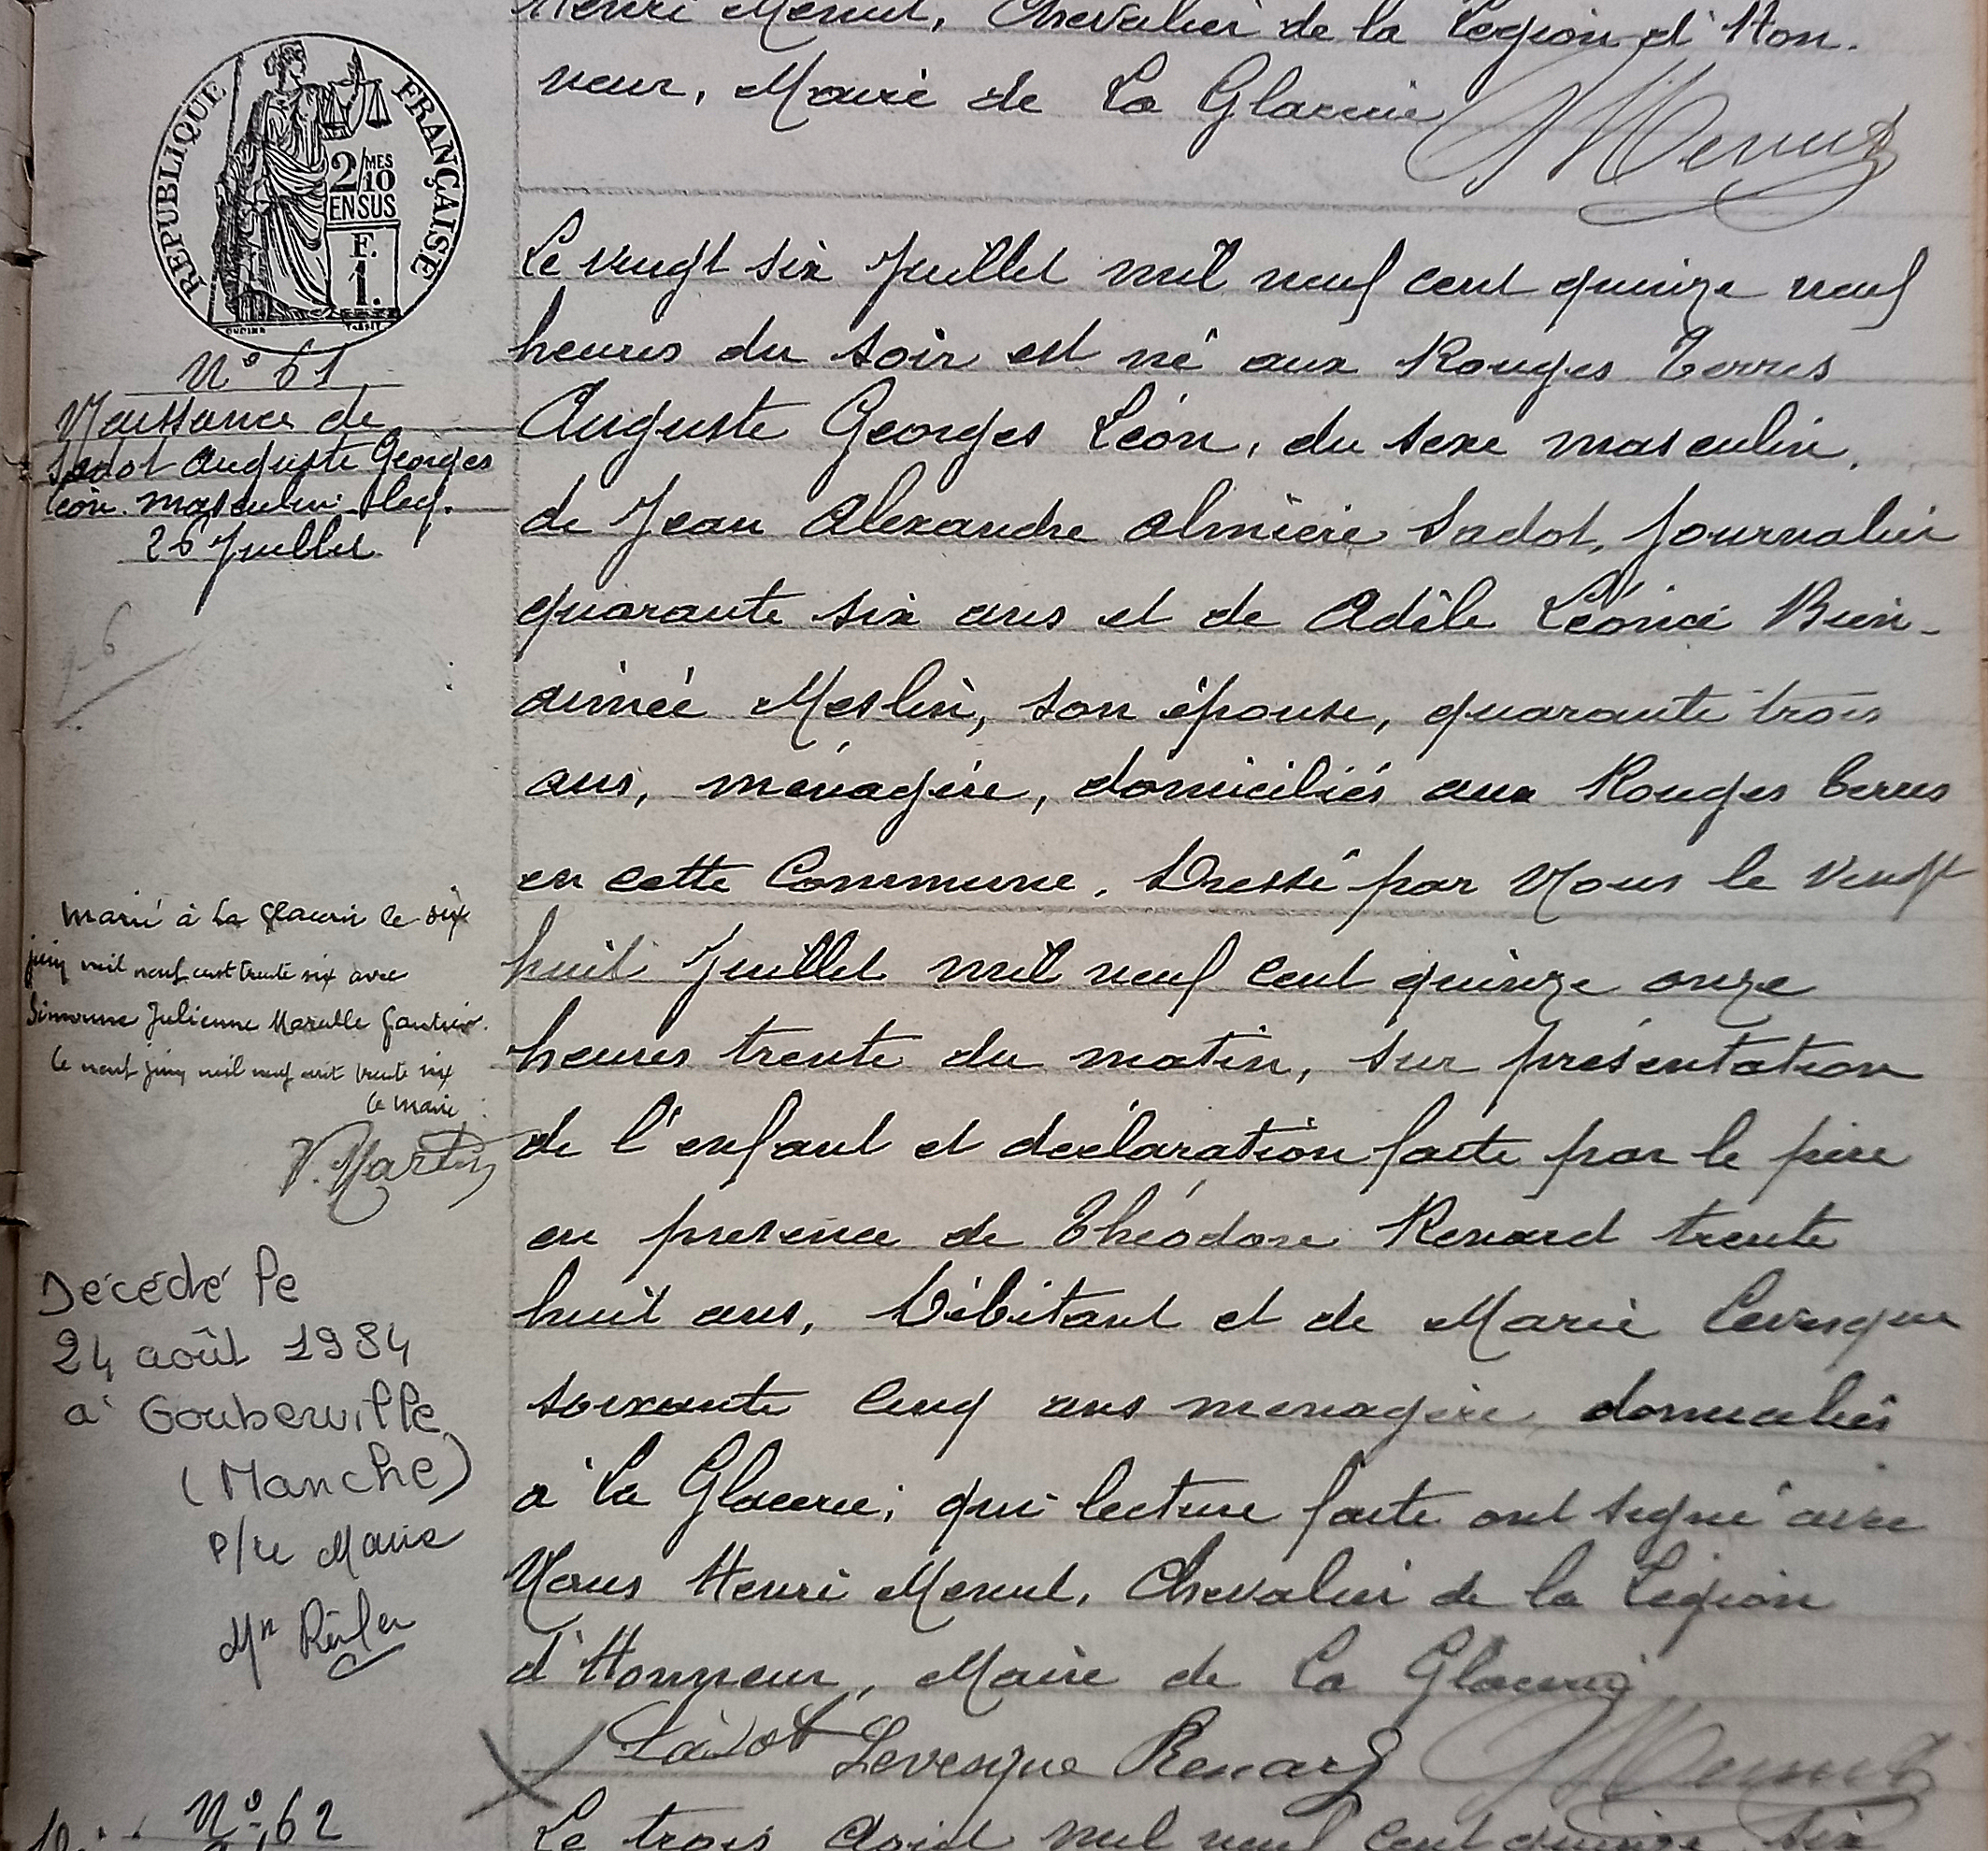 Henri Menut, Chevalier de la Légion d'Hon-
neur, Maire de La Glacerie
HMenut
RÉPUBLIQUE FRANÇAISE
2/10 MES
EN SUS
F.
1.
N° 61
Naissance de
Sadot Auguste Georges
Léon. masculin. Leg.
26 Juillet
Le vingt six Juillet mil neuf cent quinze neuf
heures du soir est né aux Rouges Terres
Auguste Georges Léon, du sexe masculin,
de Jean Alexandre Almire Sadot, journalier
quarante six ans et de Adèle Léonie Bien-
aimée Meslin, son épouse, quarante trois
ans, ménagère, domiciliés aux Rouges Terres
en cette Commune. Dressé par Nous le vingt
huit Juillet mil neuf cent quinze onze
heures trente du matin, sur présentation
de l'enfant et déclaration faite par le père
en présence de Théodore Renard trente
huit ans, Débitant et de Marie Levesque
soixante cinq ans ménagère domiciliés
à La Glacerie; qui lecture faite ont signé avec
Nous Henri Menut, Chevalier de la Légion
d'Honneur, Maire de La Glacerie
Sadot Levesque Renard HMenut
marié à La Glacerie le six
juin mil neuf cent trente six avec
Simonne Julienne Marcelle Gautier.
Le neuf juin mil neuf cent trente six
Le Maire :
V. Martin
Décédé le
24 août 1984
à Gouberville
(Manche)
P/le Maire
N° 62
Le trois Août mil neuf cent quinze six